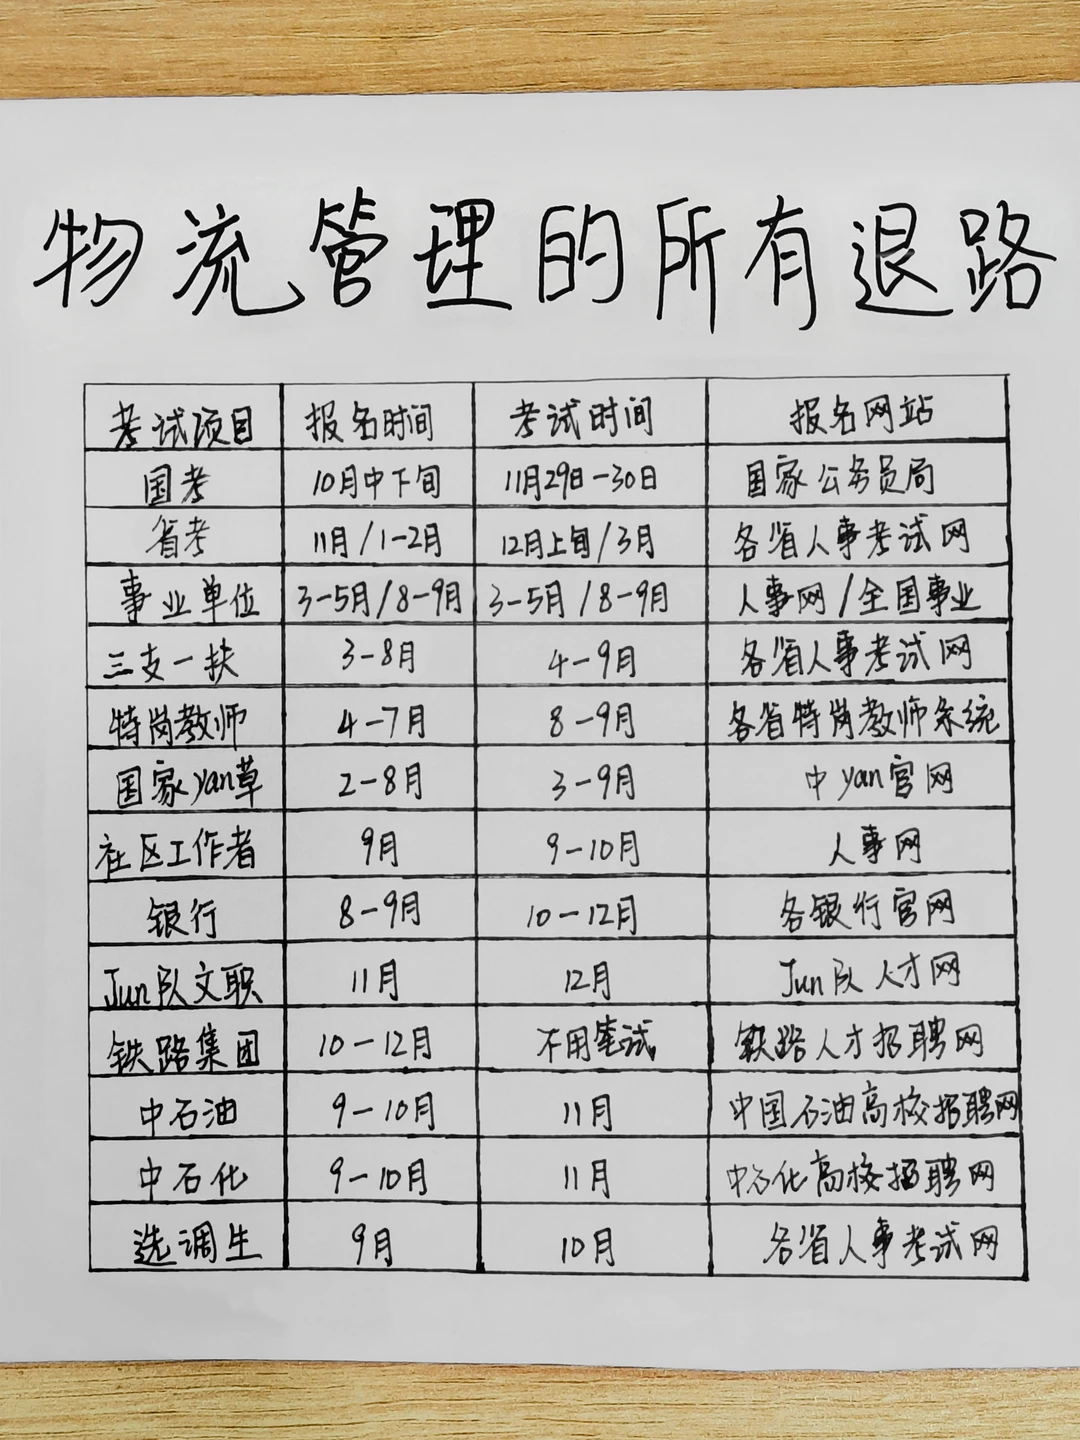 物流管理的所有退路
考试项目 报名时间 考试时间 报名网站
国考 10月中下旬 11月29日-30日 国家公务员局
省考 11月/1-2月 12月上旬/3月 各省人事考试网
事业单位 3-5月/8-9月 3-5月/8-9月 人事网/全国事业
三支一扶 3-8月 4-9月 各省人事考试网
特岗教师 4-7月 8-9月 各省特岗教师系统
国家yan草 2-8月 3-9月 中yan官网
社区工作者 9月 9-10月 人事网
银行 8-9月 10-12月 各银行官网
Jun队文职 11月 12月 Jun队人才网
铁路集团 10-12月 不用笔试 铁路人才招聘网
中石油 9-10月 11月 中国石油高校招聘网
中石化 9-10月 11月 中石化高校招聘网
选调生 9月 10月 各省人事考试网